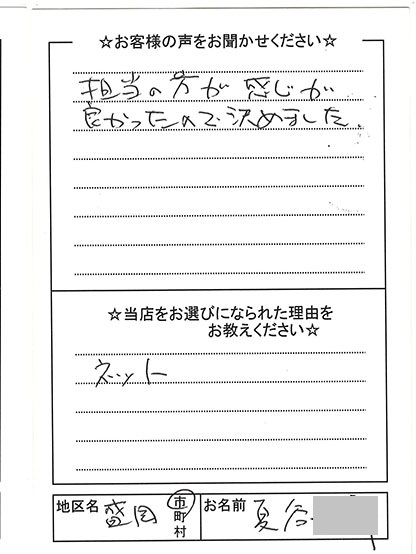 ☆お客様の声をお聞かせください☆
担当の方が感じが
良かったので決めました。
☆当店をお選びになられた理由を
お教えください☆
ネット
地区名 盛岡 市町村 お名前 夏谷